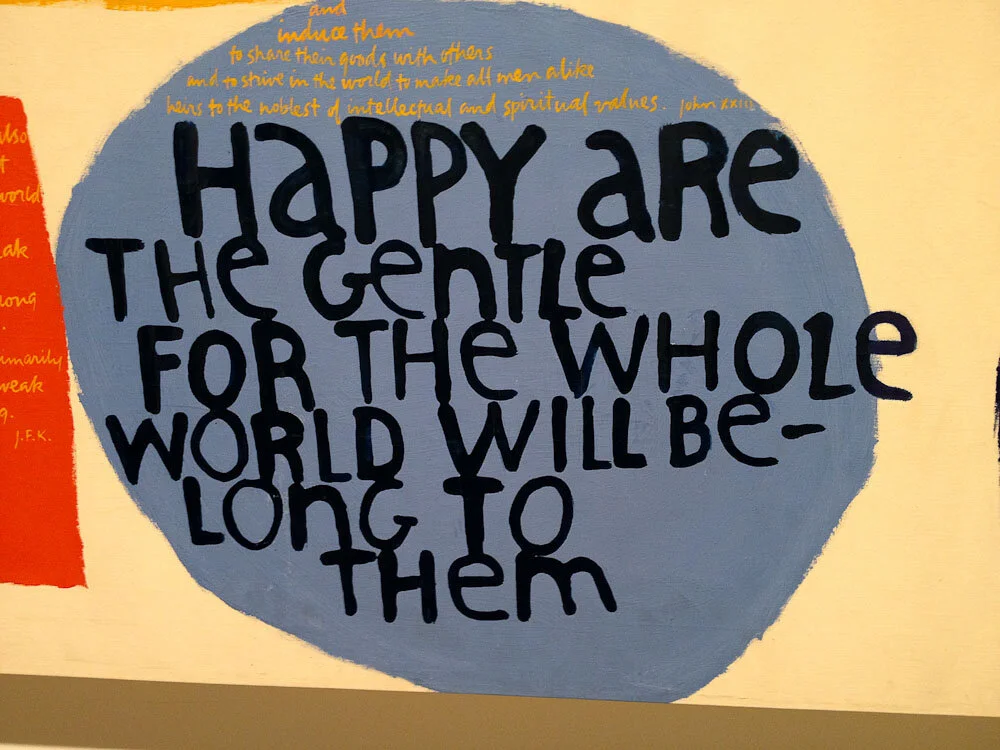 and
induce them
to share their goods with others
and to strive in the world to make all men alike
heirs to the noblest of intellectual and spiritual values. John XXIII
Happy are
the gentle
for the whole
world will be-
long to
them
also
world
eak
ong
imarily
weak
9.
J.F.K.